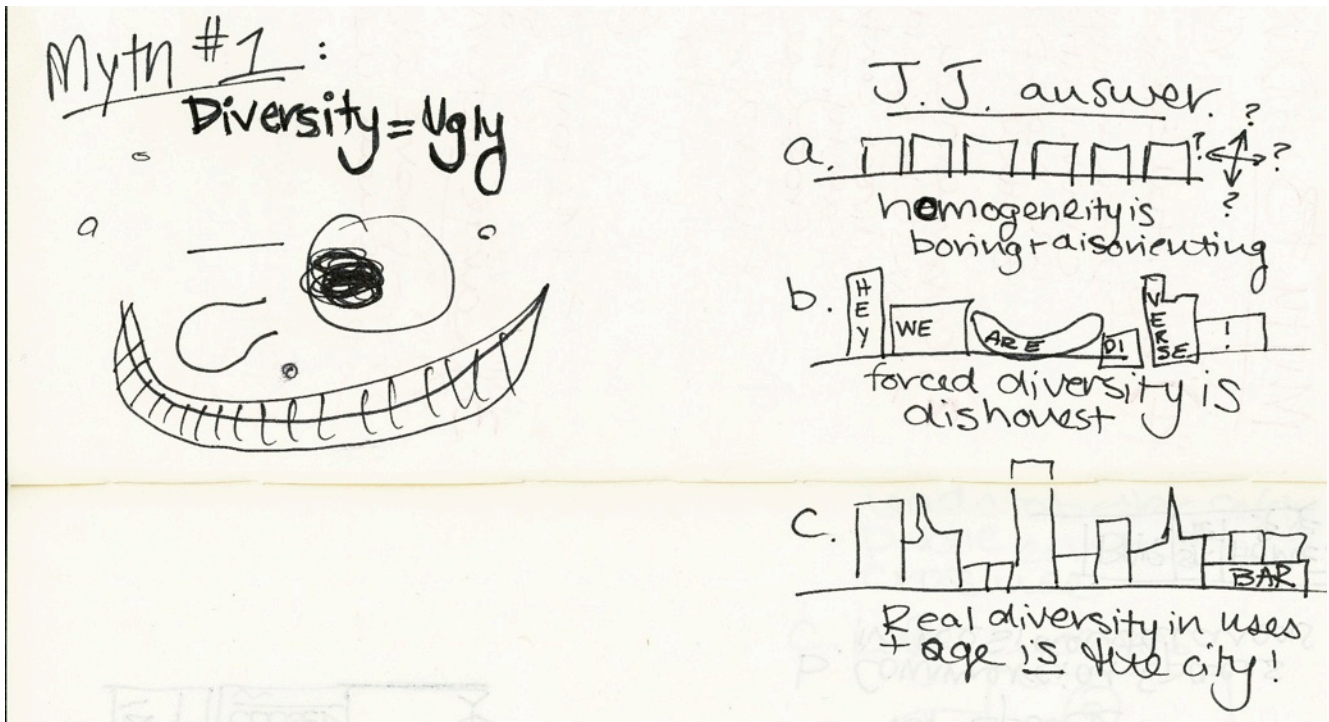 Myth #1:
Diversity = Ugly
J.J. answer.
a.
? ? ? ?
homogeneity is
boring + disorienting
b. HEY WE ARE DI VERSE !
forced diversity is
dishonest
c.
BAR
Real diversity in uses
+ age is the city!